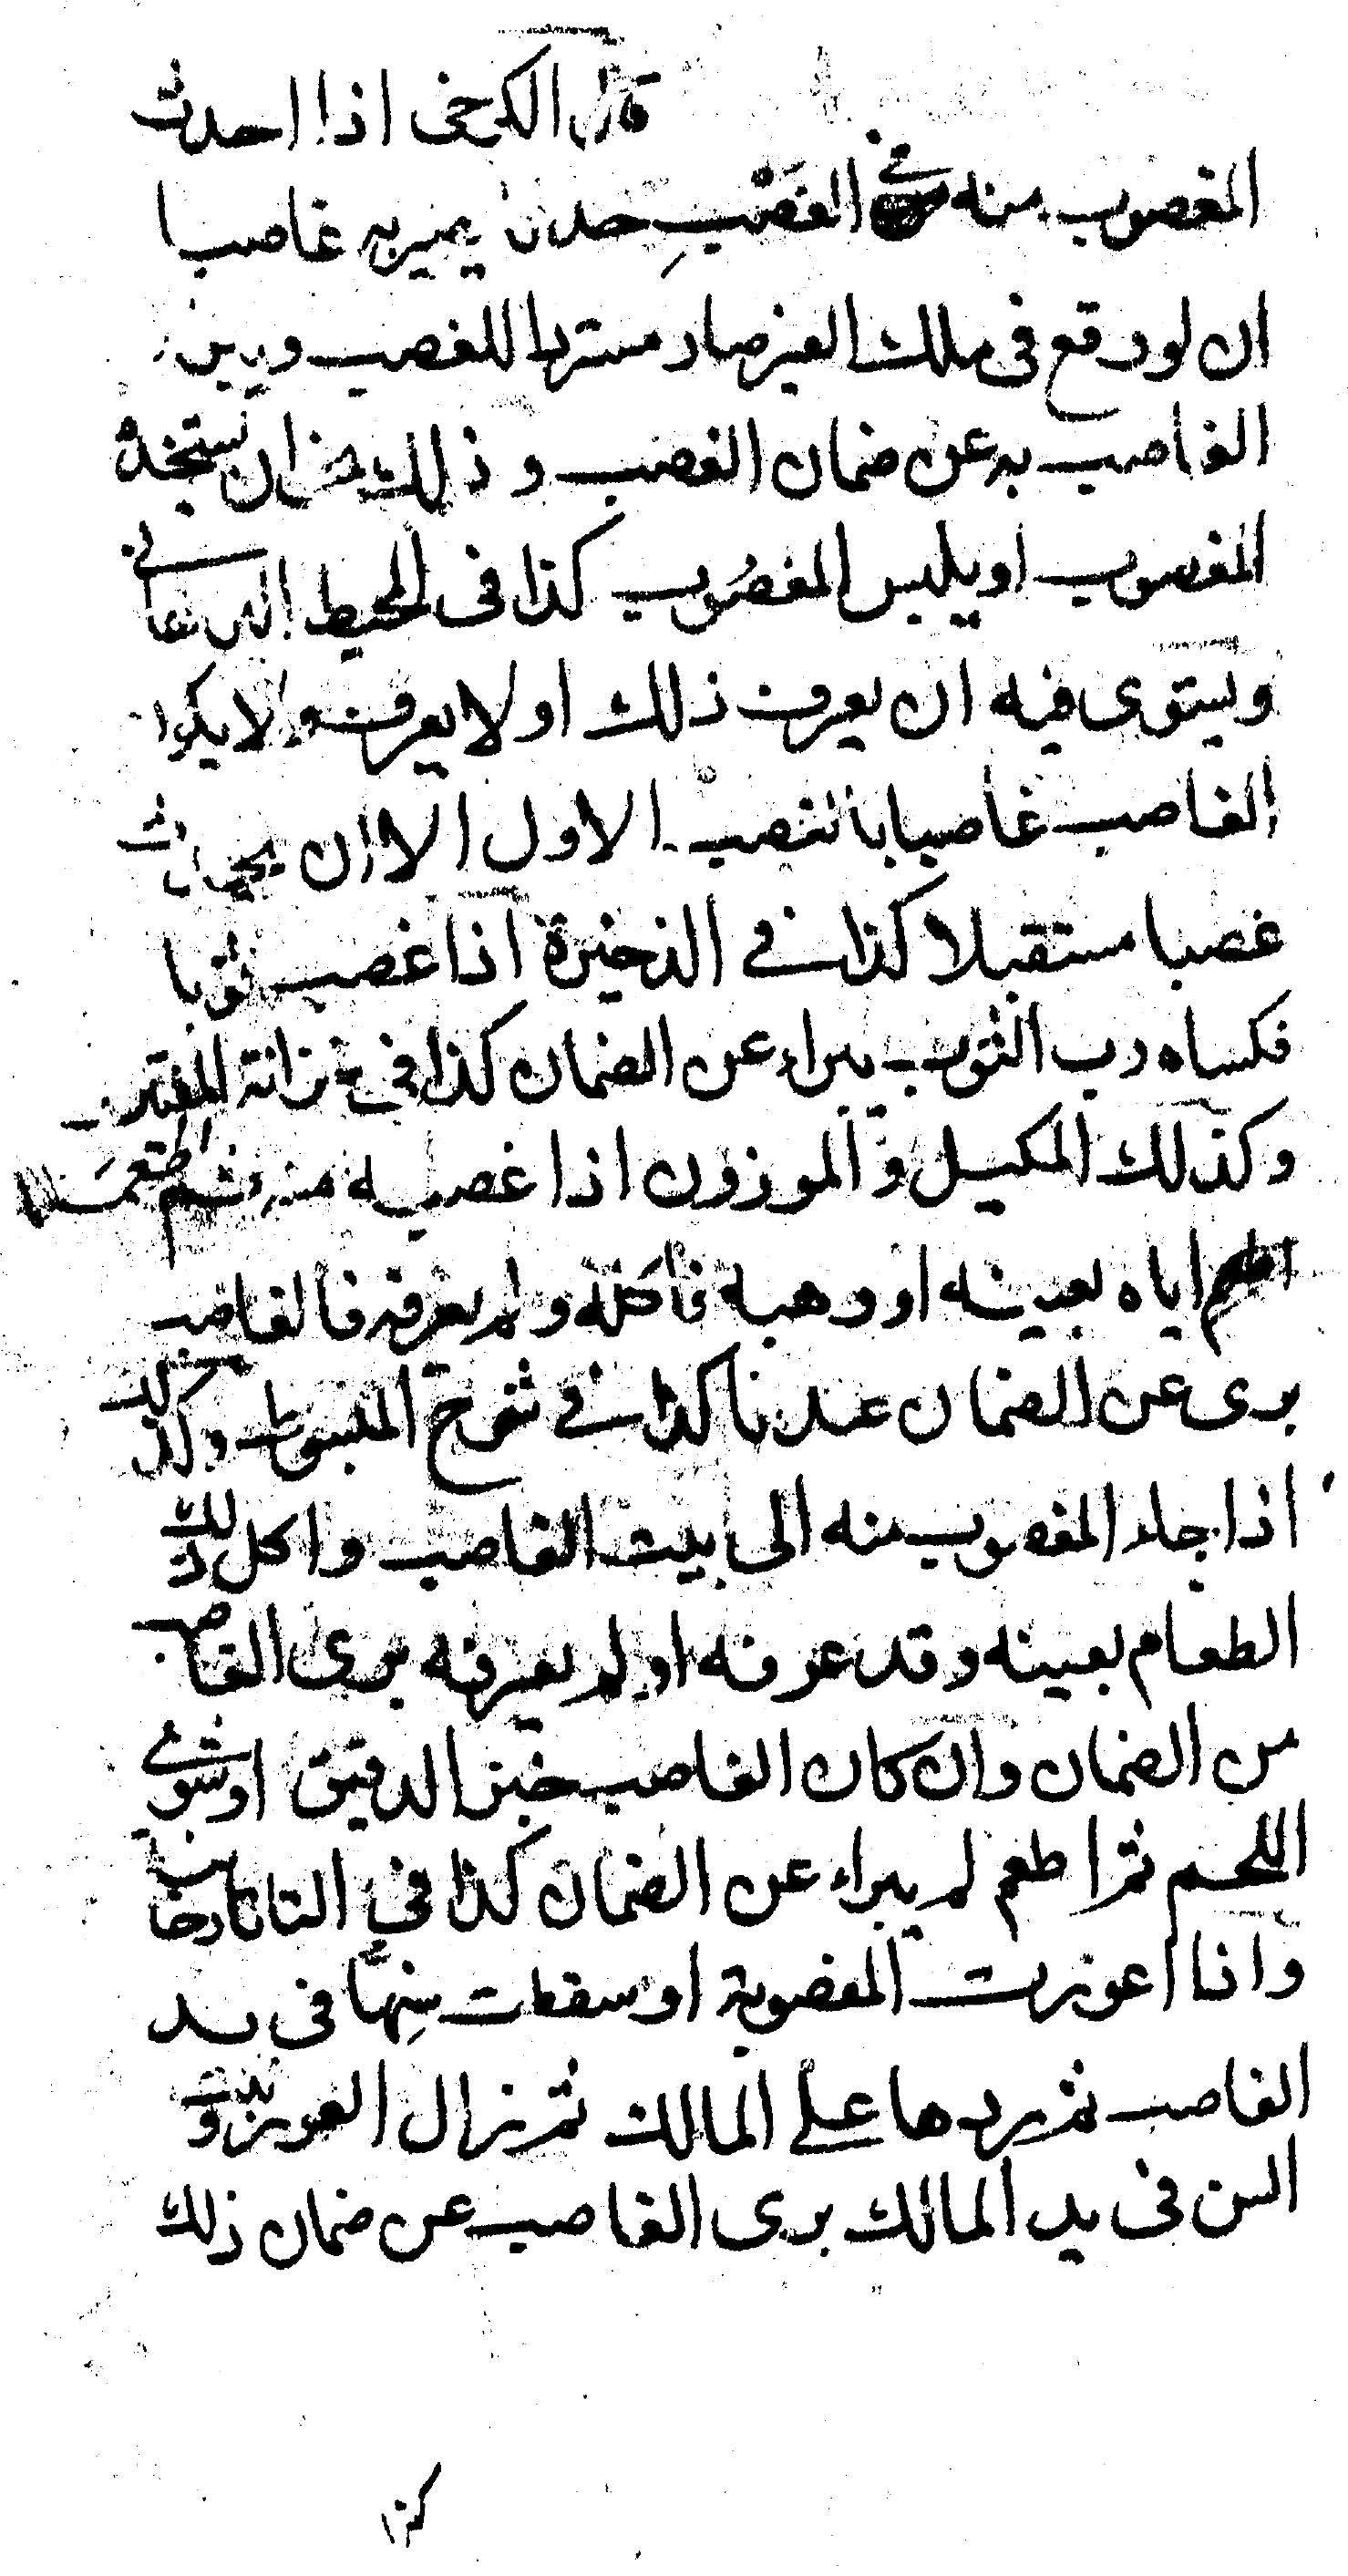 قال الكرخي اذا احدث
المغصوب منه في الغصب حدثا يصير به غاصبا
ان لو وقع في ملك الغير صار مستردا للغصب ويبرئ
الغاصب به عن ضمان الغصب و ذلك نحو ان يستخدم
المغصوب او يلبس المغصوب كذا في المحيط
ويستوي فيه ان يعرف ذلك او لا يعرف ولا يكون
الغاصب غاصبا بالغصب الاول الا ان يحدث
غصبا مستقبلا كذا في الذخيرة اذا غصب ثوبا
فكساه رب الثوب يبراء عن الضمان كذا في خزانة المفتين
وكذلك المكيل والموزون اذا غصبه منه ثم
اطعم اياه بعينه او وهبه فاكله ولم يعرفه فالغاصب
برى عن الضمان عندنا كذا في شرح المبسوط وكذلك
اذا جاء المغصوب منه الى بيت الغاصب واكل ذلك
الطعام بعينه وقد عرفه او لم يعرفه برى الغاصب
من الضمان وان كان الغاصب خبز الدقيق او شوى
اللحم ثم اطعم لم يبراء عن الضمان كذا في التاتارخانية
واذا اعورت المغصوبة او سقطت سنها في يد
الغاصب ثم ردها على المالك ثم زال العور ونبتت
السن في يد المالك برى الغاصب عن ضمان ذلك
كذا